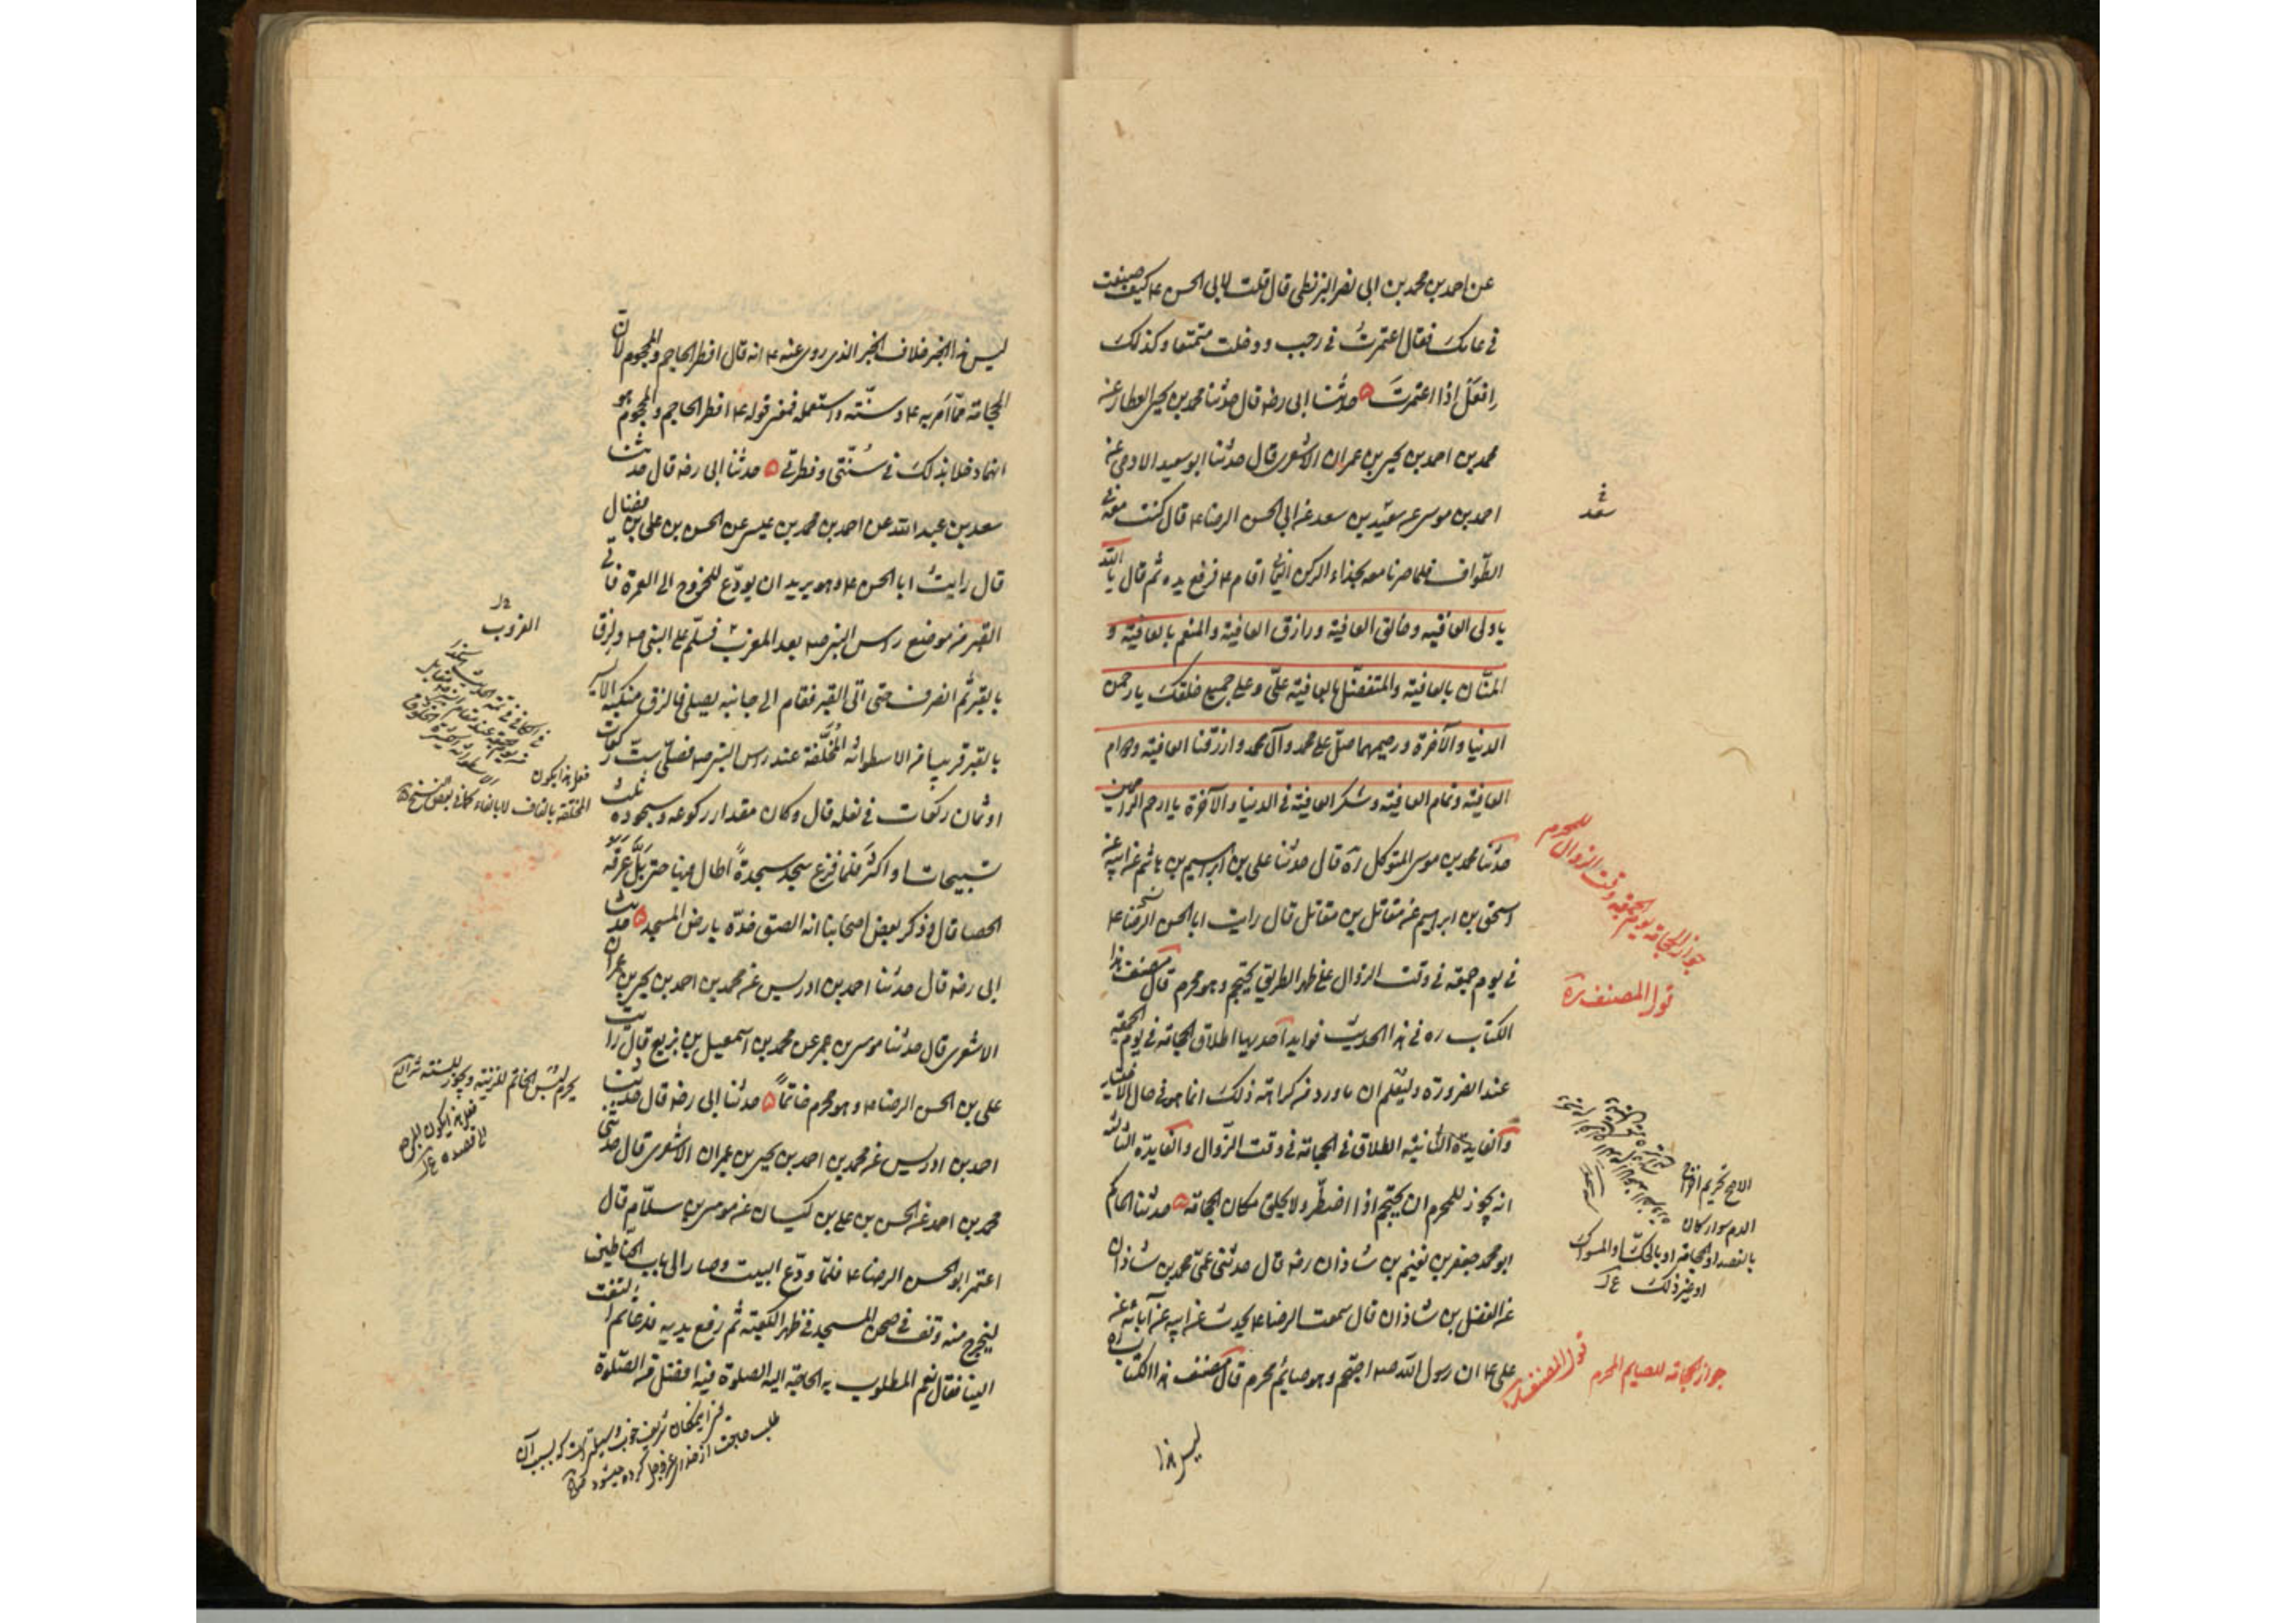 عن احمد بن محمد بن ابی نصر البزنطی قال قلت لابی الحسن ع کیف صنعت
فی عامک فقال اعتمرت فی رجب و دخلت متمتعا و کذلک
افعل اذا اعتمرت ۵ حدثنا ابی رضه قال حدثنا محمد بن یحیی العطار عن
محمد بن احمد بن یحیی بن عمران الاشعری قال حدثنا ابو سعید الادمی عن
احمد بن موسی عن سعید بن سعد عن ابی الحسن الرضا ع قال کنت معه فی
الطواف فلما صرنا معه بحذاء الرکن الیمانی اقام ع فرفع یده ثم قال یا الله
یا ولی العافیه و خالق العافیة و رازق العافیة والمنعم بالعافیة و
المنّان بالعافیة والمتفضل بالعافیة علیّ و علی جمیع خلقک یا رحمن
الدنیا والآخرة و رحیمهما صلّ علی محمد و آل محمد وارزقنا العافیة و دوام
العافیة و تمام العافیة و شکر العافیة فی الدنیا والآخرة یا ارحم الراحمین
حدثنا محمد بن موسی المتوکل ره قال حدثنا علی بن ابرهیم بن هاشم عن ابیه عن
اسحق بن ابراهیم عن مقاتل بن مقاتل قال رایت ابا الحسن الرضا ع
فی یوم جمعة فی وقت الزوال علی ظهر الطریق یحتجم و هو محرم قال مصنف هذا
الکتاب ره فی هذا الحدیث فواید احدیها اطلاق الحجامة فی یوم الجمعة
عند الضرورة و لیعلم ان ما ورد من کراهة ذلک انما هو فی حال الاختیار
والفایدة الثانیة الاطلاق فی الحجامة فی وقت الزوال والفایدة الثالثة
انه یجوز للمحرم ان یحتجم اذا اضطر و لا یحلق مکان الحجامة ۵ حدثنا الحاکم
ابو محمد جعفر بن نعیم بن شاذان رضه قال حدثنی عمی محمد بن شاذان
عن الفضل بن شاذان قال سمعت الرضا ع یحدث عن ابیه عن آبائه عن
علی ع ان رسول الله ص احتجم و هو صایم محرم قال مصنف هذا الکتاب ره
لیس هذا
فی
سعد
جواز الحجامة یوم الجمعة وقت الزوال للمحرم
قول المصنف ره
الدم سواء کان
بالفصد او الحجامة او بالحک والسواک
او غیر ذلک
جواز الحجامة للصایم المحرم
قول المصنف ره
لیس هذا الخبر خلاف الخبر الذی روی عنه ع انه قال افطر الحاجم والمحجوم لان
الحجامة مما امر به ع و سنّته و استعمله فمعنی قوله ع افطر الحاجم والمحجوم هو
انهما دخلا بذلک فی سنّتی و فطرتی ۵ حدثنا ابی رضه قال حدثنا
سعد بن عبد الله عن احمد بن محمد بن عیسی عن الحسن بن علی بن فضال
قال رایت ابا الحسن ع و هو یرید ان یودّع للخروج الی العمرة فاتی
القبر من موضع راس النبی ص بعد المغرب فسلّم علی النبی ص و لزق
بالقبر ثم انصرف حتی اتی القبر فقام الی جانبه یصلی فالزق منکبه الایسر
بالقبر قریبا من الاسطوانة المخلّفة عند راس النبی ص فصلّی ستّ رکعات
او ثمان رکعات فی نعله قال و کان مقدار رکوعه و سجوده ثلث
تسبیحات او اکثر فلما فرغ سجد سجدةً اطال فیها حتی بلّ عرقه
الحصا قال و ذکر بعض اصحابنا انه الصق خدّه بارض المسجد ۵ حدثنا
ابی رضه قال حدثنا احمد بن ادریس عن محمد بن احمد بن یحیی بن عمران
الاشعری قال حدثنا موسی بن عمر عن محمد بن اسمعیل بن بزیع قال رایت
علی بن الحسن الرضا ع و هو محرم خاتماً ۵ حدثنا ابی رضه قال حدثنا
احمد بن ادریس عن محمد بن احمد بن یحیی بن عمران الاشعری قال حدثنی
محمد بن احمد عن الحسن بن علی بن کیسان عن موسی بن سلّام قال
اعتمر ابو الحسن الرضا ع فلمّا ودّع البیت و صار الی باب الحناطین
لیخرج منه وقف فی صحن المسجد فی ظهر الکعبة ثم رفع یدیه فدعا ثم التفت
الینا فقال نعم المطلوب به الحاجة الیه الصلوة فیه افضل من الصلوة
الغروب
فعلی هذا یکون
المخلقة بالقاف لا بالفاء کما فی بعض النسخ
یحرم لبس الخاتم للزینة و یجوز للسنة
فعلی هذا یکون